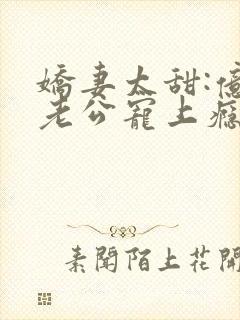 嬌妻太甜:億
老公寵上癮
素聞陌上花開